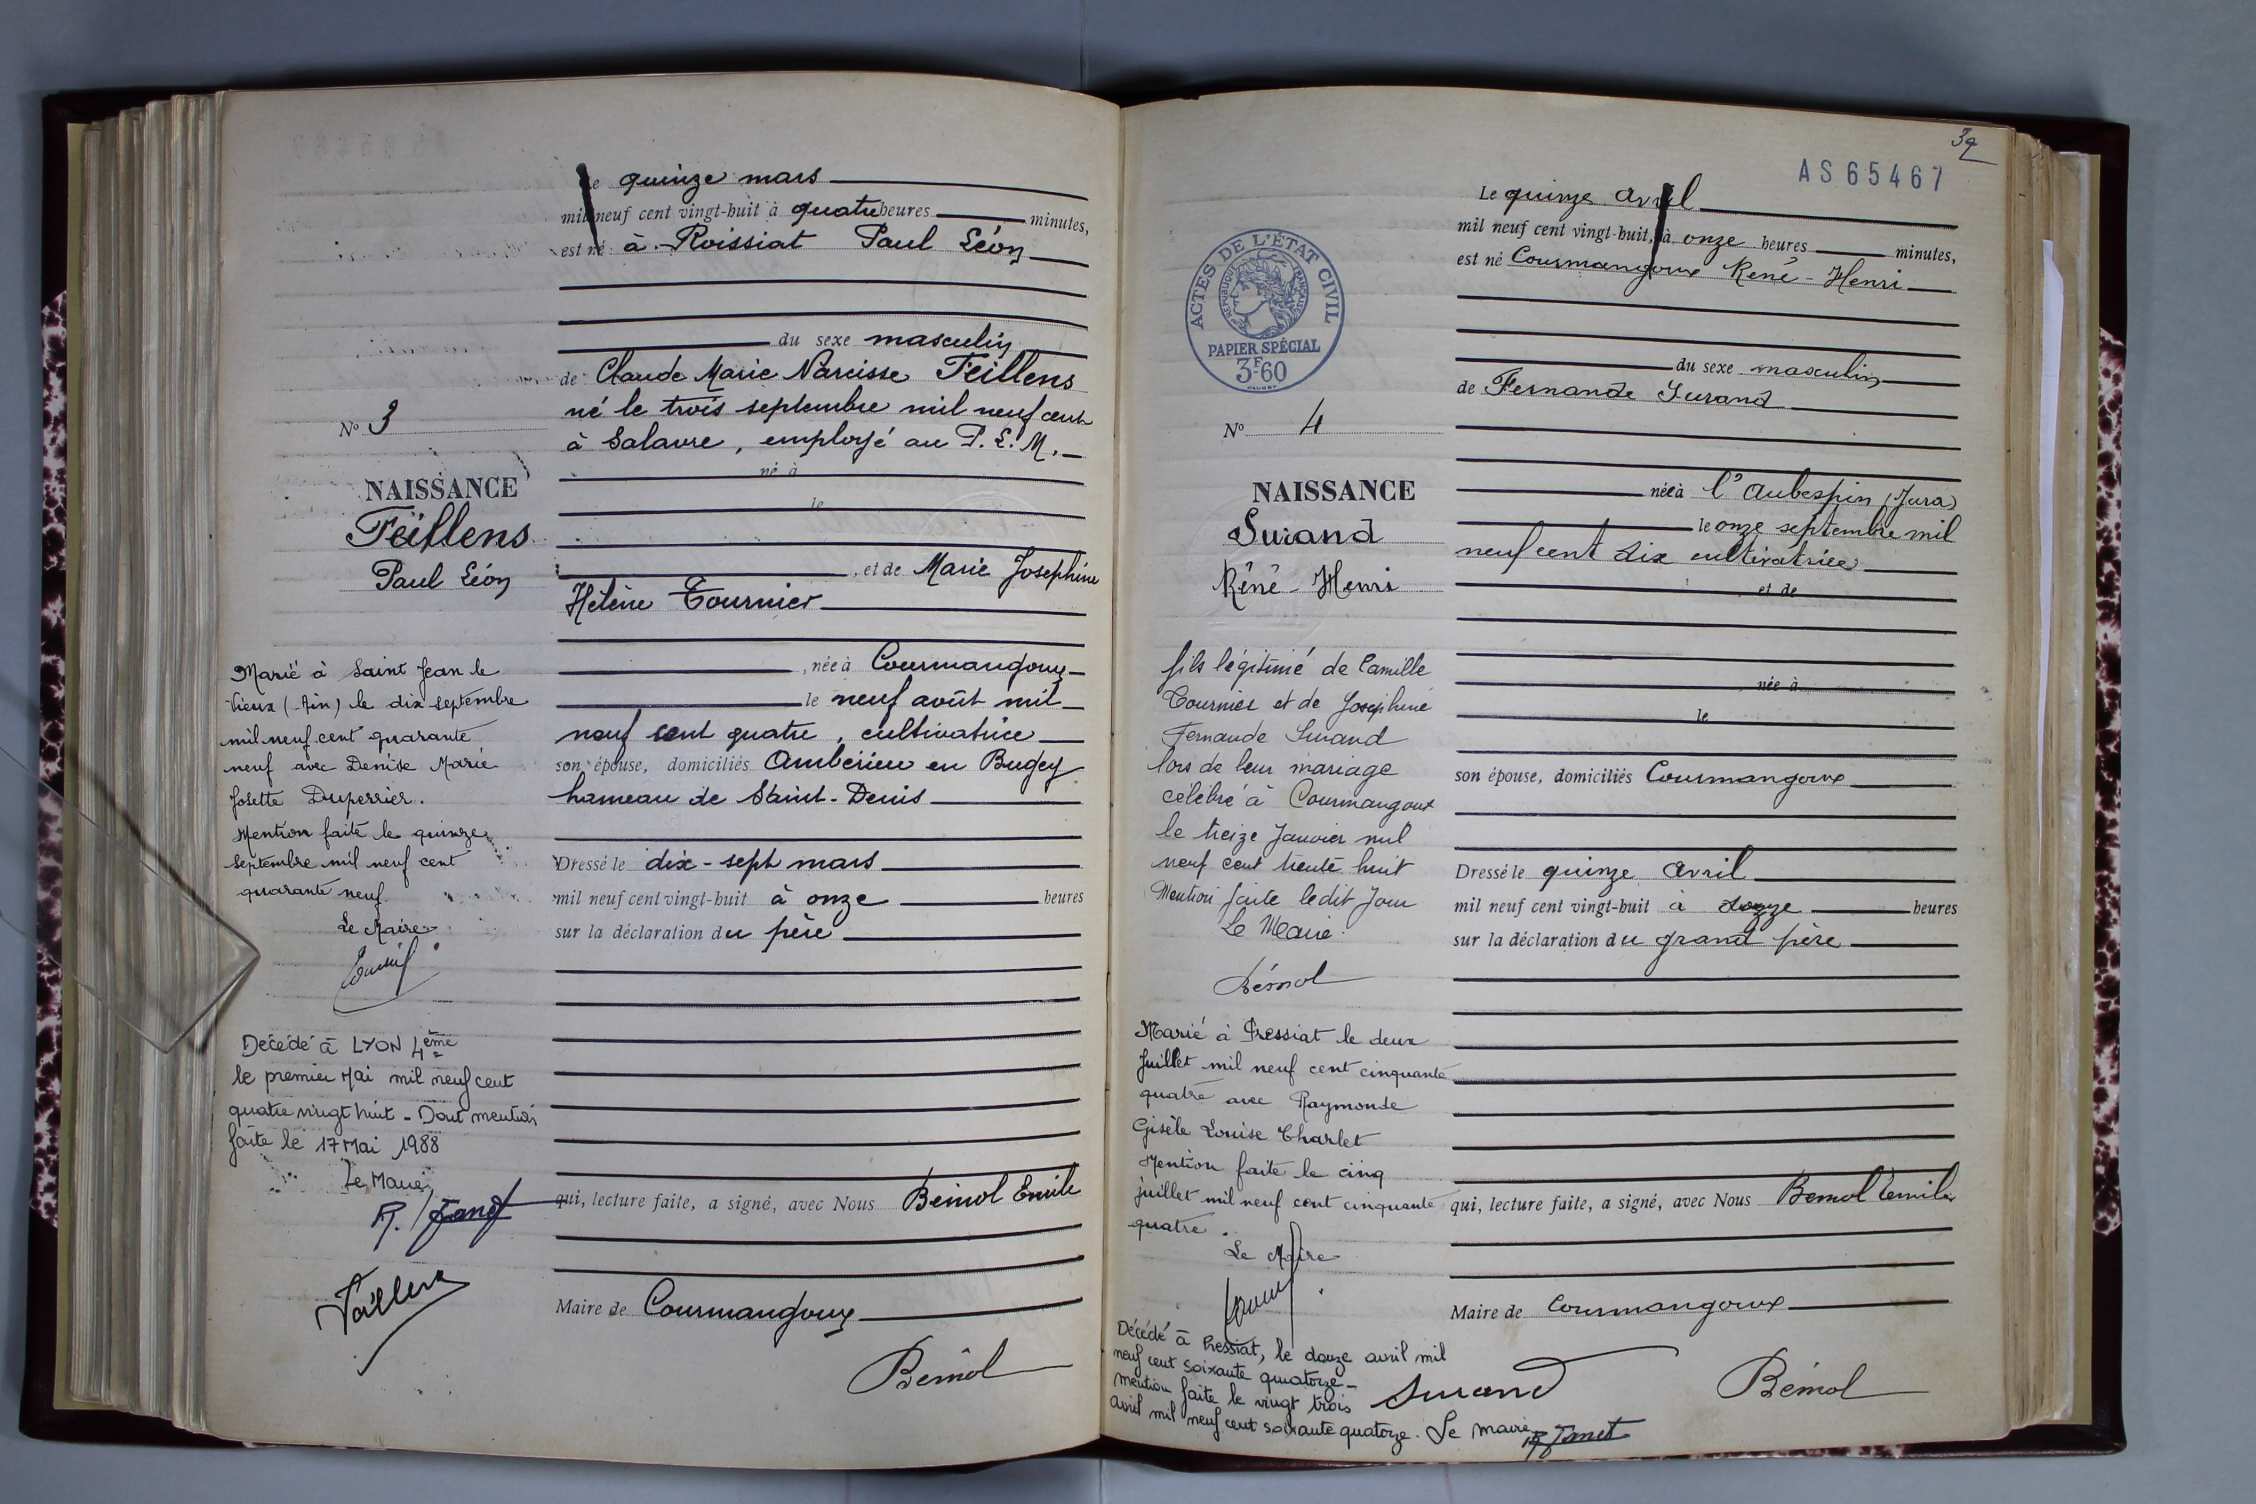 Le quinze mars
mil neuf cent vingt-huit à quatre heures minutes,
est né à Roissiat Paul Léon
du sexe masculin
de Claude Marie Narcisse Feillens
né le trois septembre mil neuf cent
à Salavre, employé au P. L. M.
né à
le
, et de Marie Josephine
Hélène Tournier
, née à Courmangoux
le neuf août mil
neuf cent quatre, cultivatrice
son épouse, domiciliés Ambérieu en Bugey
hameau de Saint-Denis
Dressé le dix-sept mars
mil neuf cent vingt-huit à onze heures
sur la déclaration du père
qui, lecture faite, a signé, avec Nous Bémol Emile
Maire de Courmangoux
Bémol
No 3
NAISSANCE
Feillens
Paul Léon
Marié à Saint Jean le
Vieux (Ain) le dix septembre
mil neuf cent quarante
neuf avec Denise Marie
Josette Duperrier.
Mention faite le quinze
septembre mil neuf cent
quarante neuf.
Le Maire
Décédé à LYON 4ème
le premier Mai mil neuf cent
quatre vingt huit - Dont mention
faite le 17 Mai 1988
Le Maire,
R. Janet
Feillens
39
AS 65467
Le quinze avril
mil neuf cent vingt-huit, à onze heures minutes,
est né Courmangoux René-Henri
du sexe masculin
de Fernande Surand
née à l'Aubespin (Jura)
le onze septembre mil
neuf cent dix cultivatrice
et de
née à
le
son épouse, domiciliés Courmangoux
Dressé le quinze avril
mil neuf cent vingt-huit à heures
sur la déclaration du grand père
qui, lecture faite, a signé, avec Nous Bémol Emile
Maire de Courmangoux
Surand
Bémol
ACTES DE L'ÉTAT CIVIL
RÉPUBLIQUE FRANÇAISE
PAPIER SPÉCIAL
3F60
No 4
NAISSANCE
Surand
Réné-Henri
fils légitimé de Camille
Tournier et de Joséphine
Fernande Surand
lors de leur mariage
célébré à Courmangoux
le treize Janvier mil
neuf cent trente huit
Mention faite ledit Jour
Le Maire
Bémol
Marié à Pressiat le deux
Juillet mil neuf cent cinquante
quatre avec Raymonde
Gisèle Louise Charlet
Mention faite le cinq
juillet mil neuf cent cinquante
quatre.
Le Maire
Décédé à Pressiat, le douze avril mil
neuf cent soixante quatorze -
mention faite le vingt trois
avril mil neuf cent soixante quatorze. Le maire,
R Janet